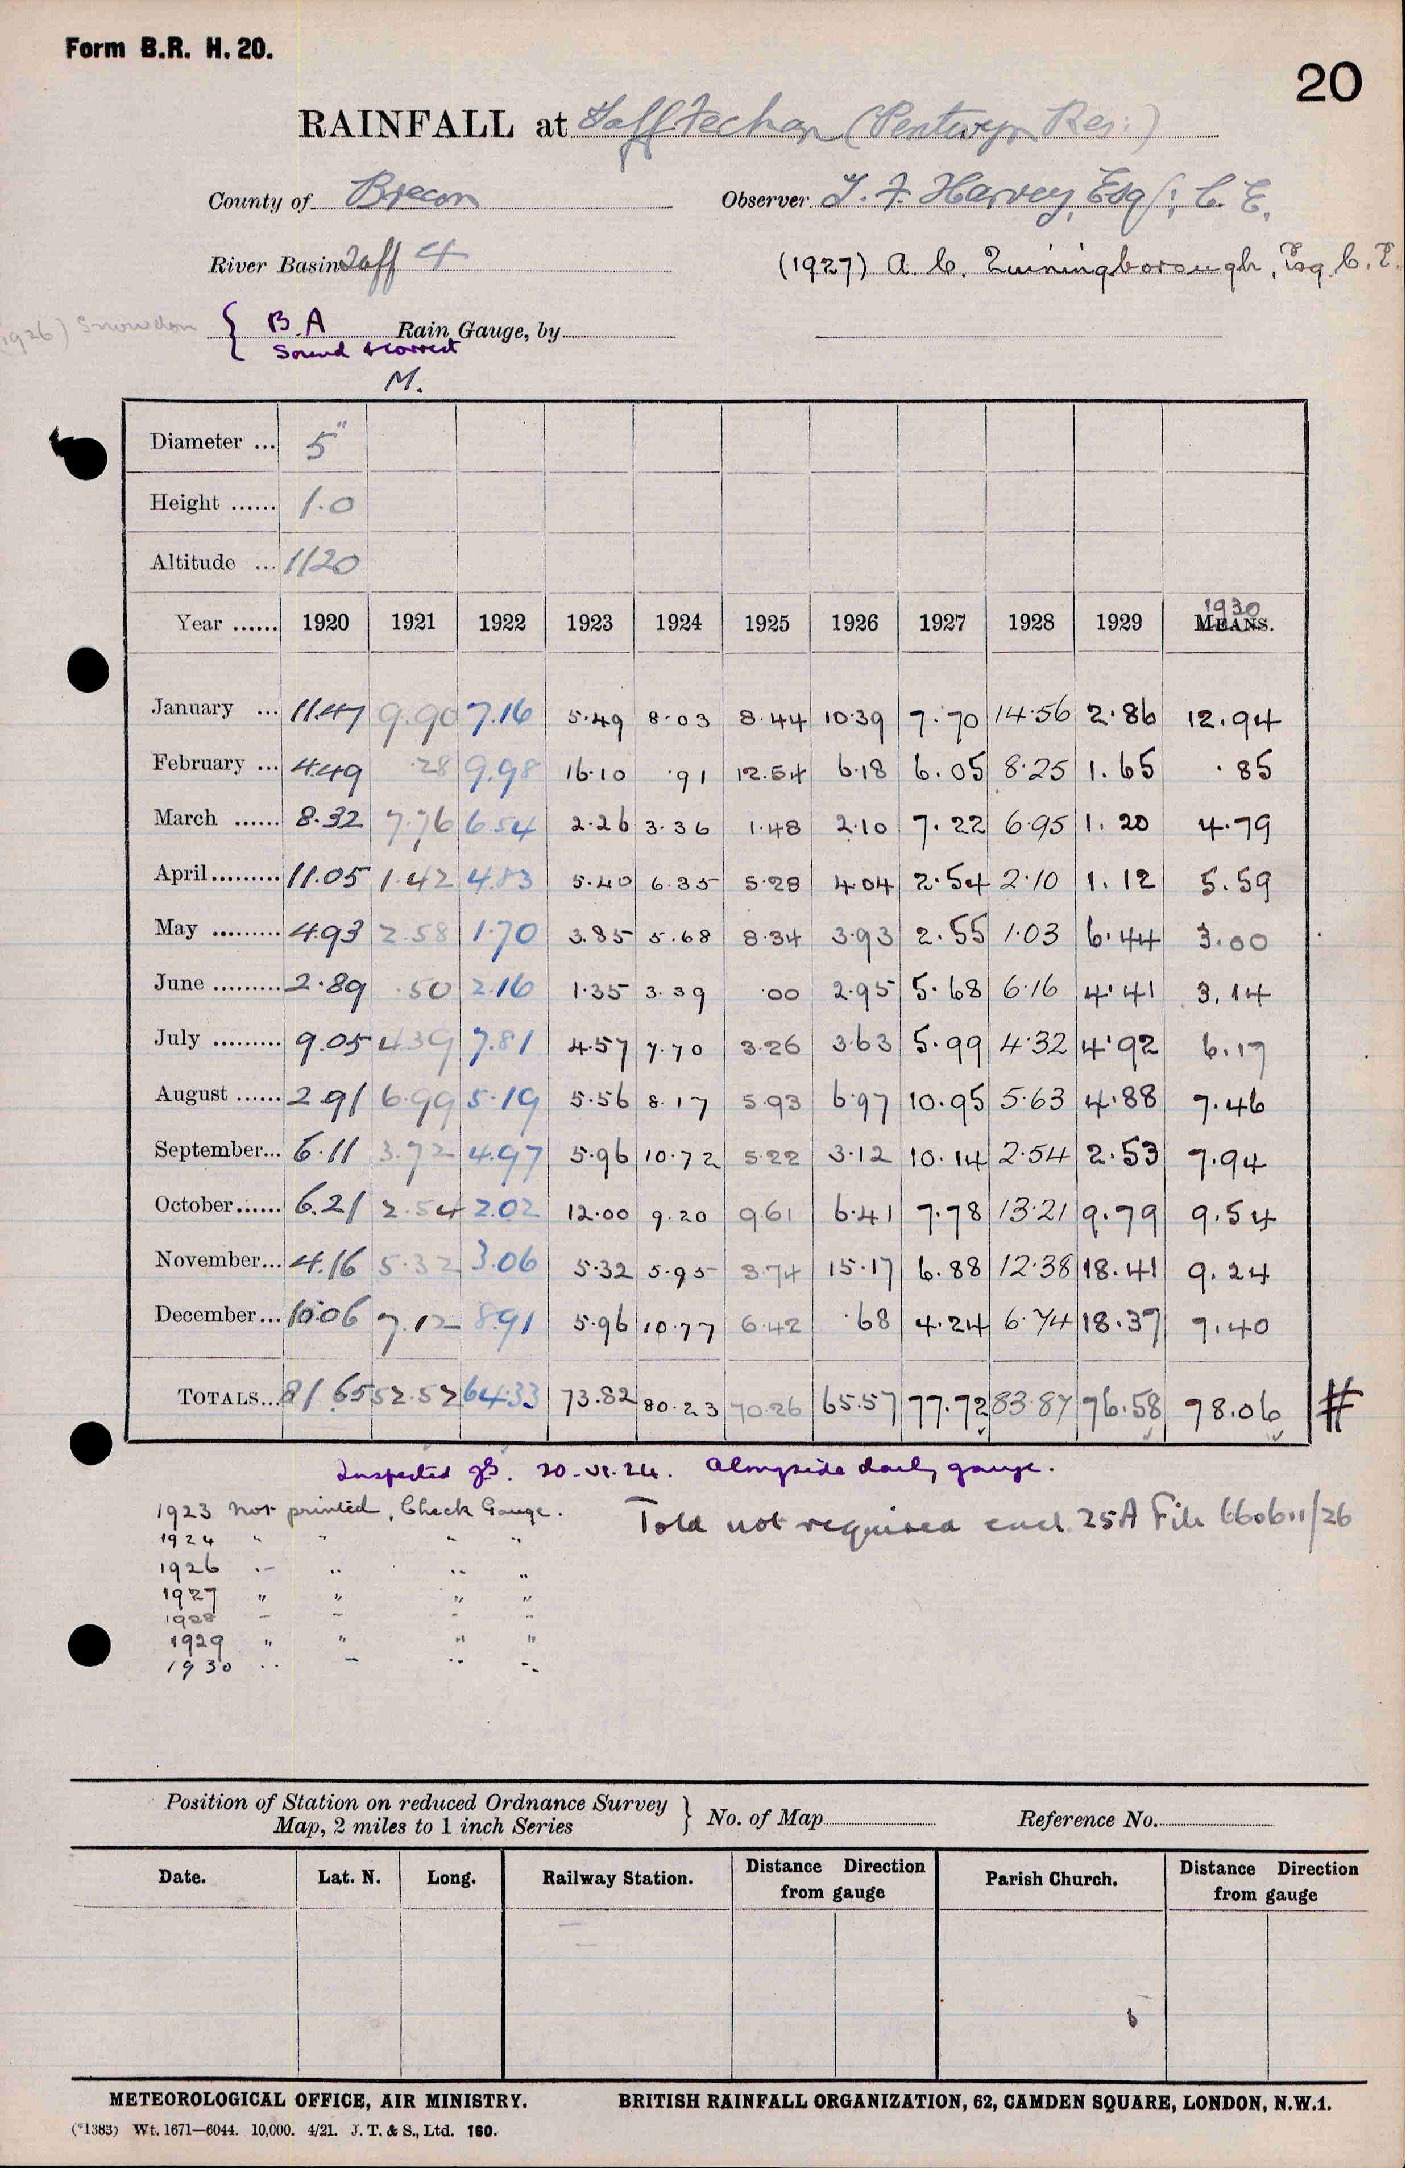 Form B.R. H. 20.
20
RAINFALL at Taff Fechan (Pentwyn Res:)
County of Brecon Observer T. F. Harvey, Esq; C. E.
River Basin Taff 4 (1927) A. C. Esq. C. E.
(1926) Snowdon { B.A Rain Gauge, by
Sound & correct
M.
Diameter ... 5"
Height ...... 1.0
Altitude ... 1120
Year ...... 1920 1921 1922 1923 1924 1925 1926 1927 1928 1929 1930 MEANS.
January ... 11.47 9.90 7.16 5.49 8.03 8.44 10.39 7.70 14.56 2.86 12.94
February ... 4.49 .28 9.98 16.10 .91 12.54 6.18 6.05 8.25 1.65 .85
March ...... 8.32 7.76 6.54 2.26 3.36 1.48 2.10 7.22 6.95 1.20 4.79
April ......... 11.05 1.42 4.83 5.40 6.35 5.28 4.04 2.54 2.10 1.12 5.59
May ......... 4.93 2.58 1.70 3.85 5.68 8.34 3.93 2.55 1.03 6.44 3.00
June ......... 2.89 .50 2.16 1.35 3.39 .00 2.95 5.68 6.16 4.41 3.14
July ......... 9.05 4.39 7.81 4.57 7.70 3.26 3.63 5.99 4.32 4.92 6.17
August ...... 2.91 6.99 5.19 5.56 8.17 5.93 6.97 10.95 5.63 4.88 7.46
September... 6.11 3.72 4.97 5.96 10.72 5.22 3.12 10.14 2.54 2.53 7.94
October...... 6.21 2.54 2.02 12.00 9.20 9.61 6.41 7.78 13.21 9.79 9.54
November... 4.16 5.32 3.06 5.32 5.95 3.74 15.17 6.88 12.38 18.41 9.24
December... 10.06 7.12 8.91 5.96 10.77 6.42 .68 4.24 6.74 18.37 7.40
TOTALS... 81.65 52.52 64.33 73.82 80.23 70.26 65.57 77.72 83.87 76.58 78.06 #
Inspected 20.VI.24. Alongside daily gauge.
1923 not printed, Check Gauge. Told not required encl. 25A File 660611/26
1924 " " " "
1926 " " " "
1927 " " " "
1928 " " " "
1929 " " " "
1930 " " " "
Position of Station on reduced Ordnance Survey Map, 2 miles to 1 inch Series } No. of Map Reference No.
Date. Lat. N. Long. Railway Station. Distance Direction from gauge Parish Church. Distance Direction from gauge
METEOROLOGICAL OFFICE, AIR MINISTRY. BRITISH RAINFALL ORGANIZATION, 62, CAMDEN SQUARE, LONDON, N.W.1.
(*1383) Wt. 1671—6044. 10,000. 4/21. J. T. & S., Ltd. 160.